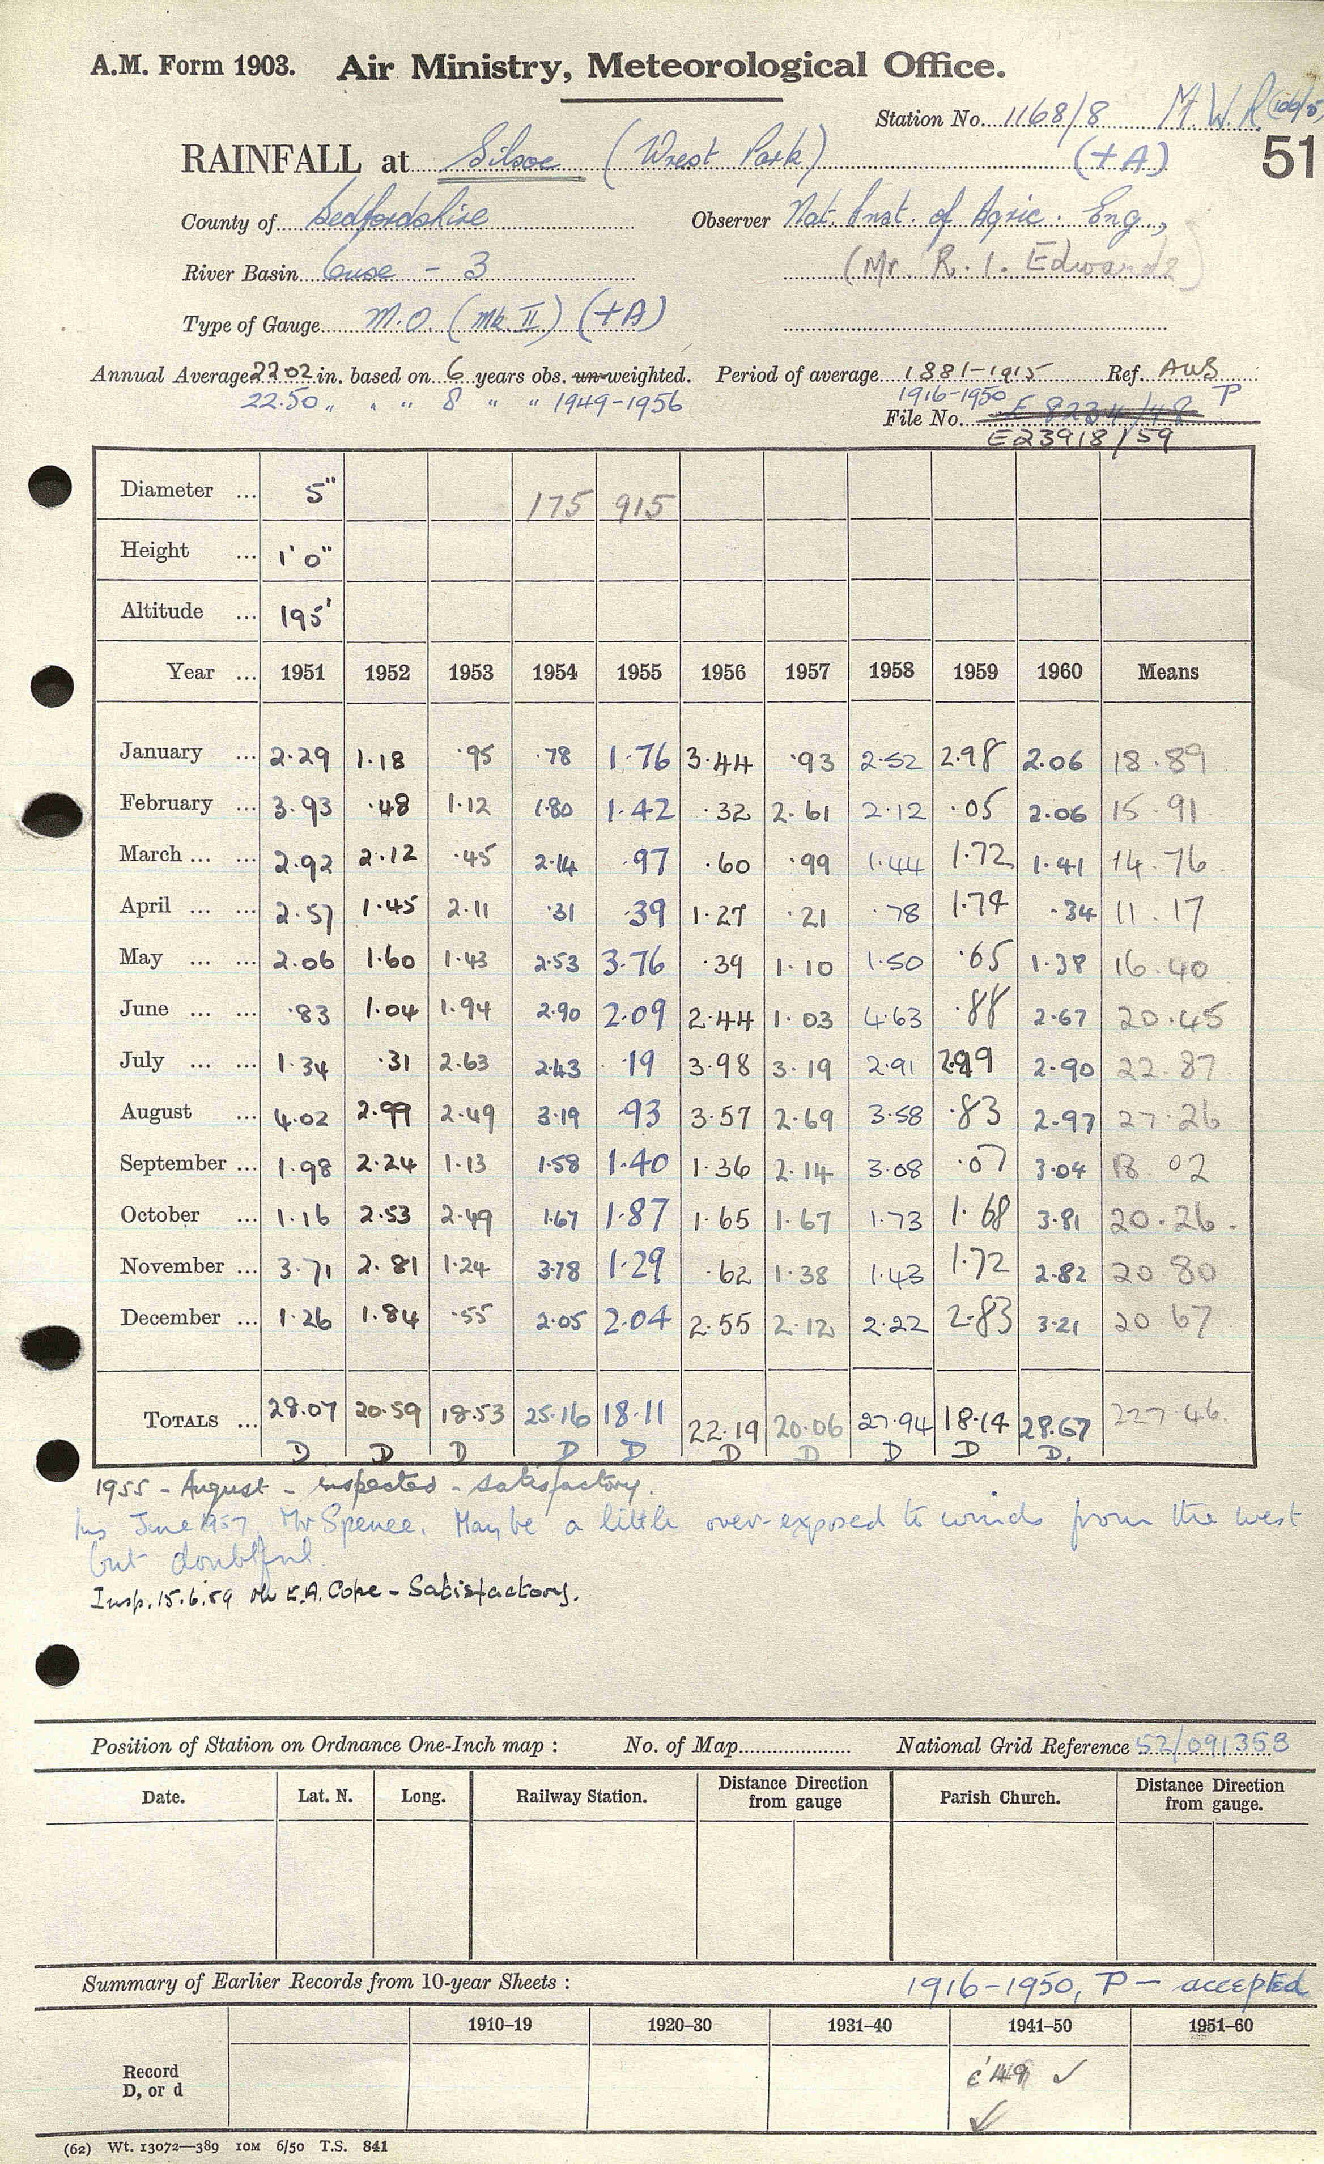 A.M. Form 1903. Air Ministry, Meteorological Office.
Station No. 1168/8 M.W.R.
RAINFALL at Silsoe (Wrest Park) (+A) 51
County of Bedfordshire Observer Nat. Inst. of Agric. Eng.,
River Basin Ouse - 3 (Mr R. I. Edwards)
Type of Gauge M.O. (Mk II) (+A)
Annual Average 22.02 in. based on 6 years obs. un-weighted. Period of average 1881-1915 Ref. AWS
22.50 " " " 8 " " 1949-1956 1916-1950 P
File No. E 8234/48
E23918/59
Diameter ... 5" 175 915
Height ... 1' 0"
Altitude ... 195'
Year ... 1951 1952 1953 1954 1955 1956 1957 1958 1959 1960 Means
January ... 2.29 1.18 .95 .78 1.76 3.44 .93 2.52 2.98 2.06 18.89
February ... 3.93 .48 1.12 1.80 1.42 .32 2.61 2.12 .05 2.06 15.91
March ... ... 2.92 2.12 .45 2.14 .97 .60 .99 1.44 1.72 1.41 14.76
April ... ... 2.57 1.45 2.11 .31 .39 1.27 .21 .78 1.74 .34 11.17
May ... ... 2.06 1.60 1.43 2.53 3.76 .39 1.10 1.50 .65 1.38 16.40
June ... ... .83 1.04 1.94 2.90 2.09 2.44 1.03 4.63 .88 2.67 20.45
July ... ... 1.34 .31 2.63 2.43 .19 3.98 3.19 2.91 2.99 2.90 22.87
August ... 4.02 2.99 2.49 3.19 .93 3.57 2.69 3.58 .83 2.97 27.26
September ... 1.98 2.24 1.13 1.58 1.40 1.36 2.14 3.08 .07 3.04 18.02
October ... 1.16 2.53 2.49 1.67 1.87 1.65 1.67 1.73 1.68 3.81 20.26.
November ... 3.71 2.81 1.24 3.78 1.29 .62 1.38 1.43 1.72 2.82 20.80
December ... 1.26 1.84 .55 2.05 2.04 2.55 2.12 2.22 2.83 3.21 20.67
TOTALS ... 28.07 20.59 18.53 25.16 18.11 22.19 20.06 27.94 18.14 28.67 227.46.
D D D D D D D D D D.
1955 - August - inspected - satisfactory.
Ins June 1957 Mr Spence. Maybe a little over-exposed to winds from the west
but doubtful.
Insp. 15.6.59 Mr E.A. Cope - Satisfactory.
Position of Station on Ordnance One-Inch map : No. of Map National Grid Reference 52/091358
Date. Lat. N. Long. Railway Station. Distance Direction from gauge Parish Church. Distance Direction from gauge.
Summary of Earlier Records from 10-year Sheets : 1916-1950, P - accepted
1910–19 1920–30 1931–40 1941–50 1951–60
Record
D, or d
c'49 ✓
✓
(62) Wt. 13072—389 10M 6/50 T.S. 841